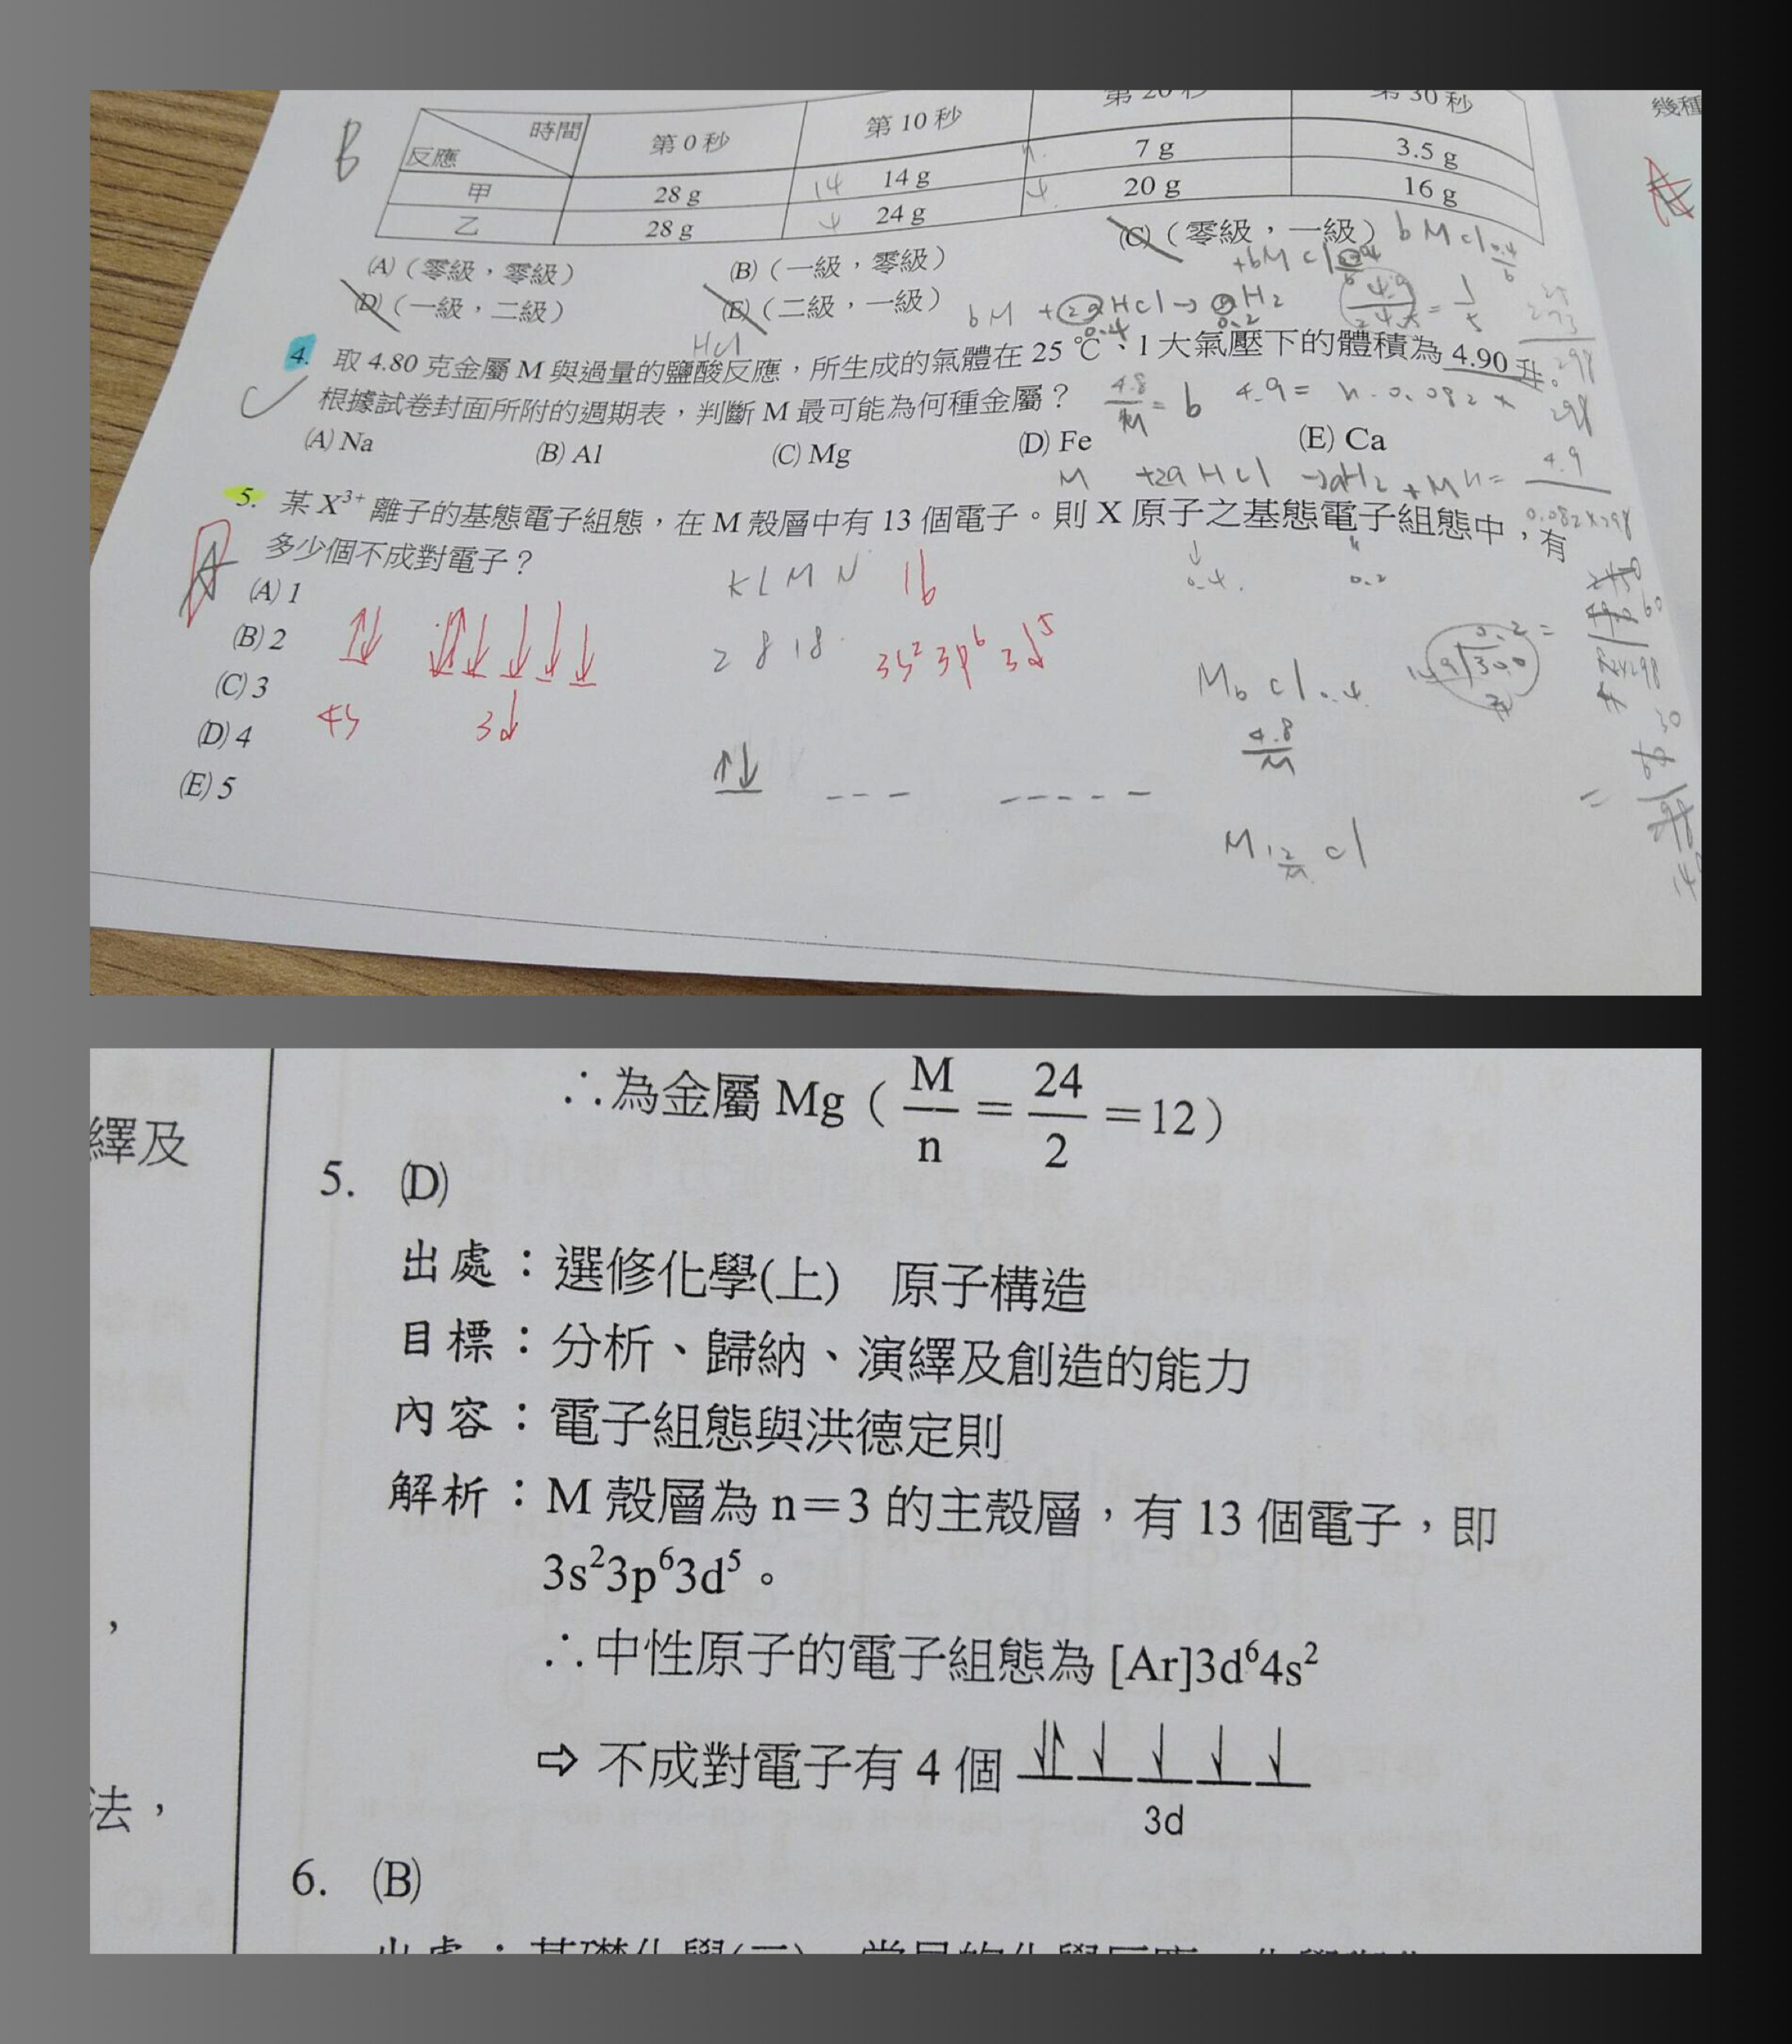 幾種
B
時間 第 0 秒 第 10 秒 第 20 秒 第 30 秒
反應
甲 28 g 14 14 g 7 g 3.5 g
乙 28 g 4 24 g 4 20 g 16 g
(A)（零級，零級） (B)（一級，零級） (C)（零級，一級）
(D)（一級，二級） (E)（二級，一級）
HCl
4. 取 4.80 克金屬 M 與過量的鹽酸反應，所生成的氣體在 25 ℃、1 大氣壓下的體積為 4.90 升。
根據試卷封面所附的週期表，判斷 M 最可能為何種金屬？
4.8/M = b 4.9 = n·0.082×298
(A) Na (B) Al (C) Mg (D) Fe (E) Ca
M +2a HCl → aH2 + M n= 4.9/0.082×298
5. 某 X³⁺ 離子的基態電子組態，在 M 殼層中有 13 個電子。則 X 原子之基態電子組態中，有
多少個不成對電子？
0.4. 0.2
A
(A) 1
(B) 2
(C) 3
(D) 4
(E) 5
K L M N 16
2 8 18
3s² 3p⁶ 3d⁵
4s 3d
Mb Cl0.4
4.8/M
∴為金屬 Mg（M/n＝24/2＝12）
5. (D)
出處：選修化學(上) 原子構造
目標：分析、歸納、演繹及創造的能力
內容：電子組態與洪德定則
解析：M 殼層為 n＝3 的主殼層，有 13 個電子，即
3s²3p⁶3d⁵。
∴中性原子的電子組態為 [Ar]3d⁶4s²
⇨ 不成對電子有 4 個
3d
6. (B)
繹及
，
法，